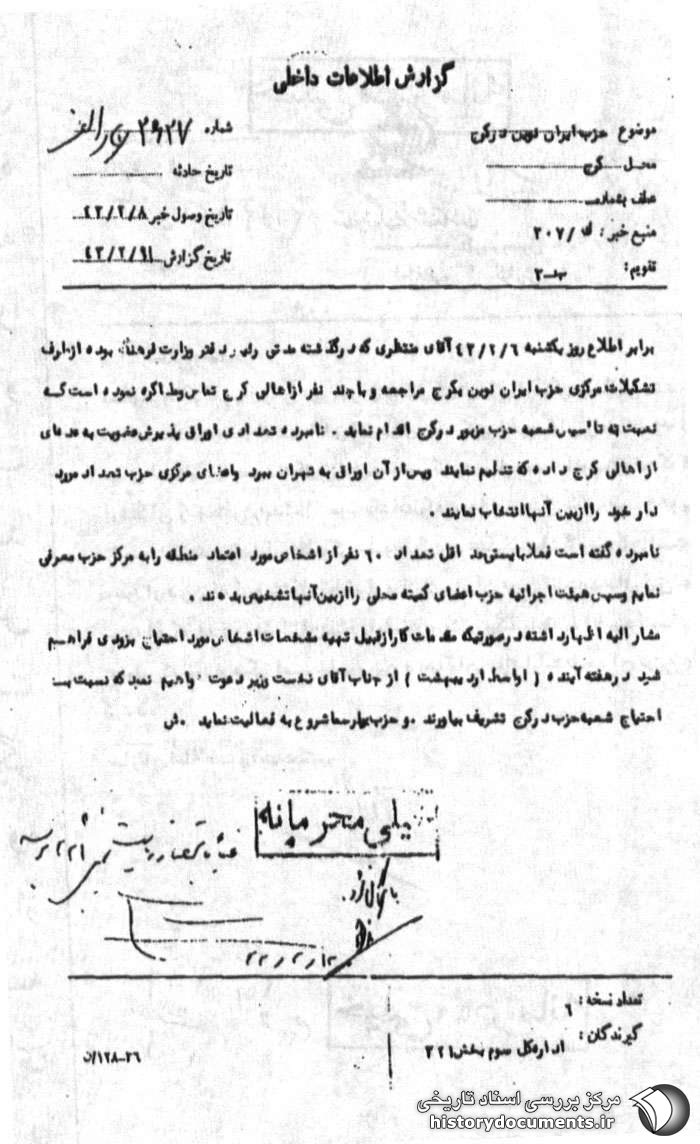 گزارش اطلاعات داخلی
موضوع حزب ایران نوین در کرج
شماره ۲۹۲۷
محل کرج
تاریخ حادثه
عطف بشماره
تاریخ وصول خبر ۴۳/۲/۸
منبع خبر : ۲۰۷/
تاریخ گزارش ۴۳/۲/۹۱
تقویم : ب-۲
برابر اطلاع روز یکشنبه ۴۳/۲/۶ آقای منتظری که در گذشته مدتی رئیس دفتر وزارت فرهنگ بوده از طرف
تشکیلات مرکزی حزب ایران نوین بکرج مراجعه و با چند نفر از اهالی کرج تماس و مذاکره نموده است که
نسبت به تاسیس شعبه حزب مزبور در کرج اقدام نماید . نامبرده تعدادی اوراق پذیرش عضویت به عده‌ای
از اهالی کرج داده که تنظیم نمایند و پس از آن اوراق به تهران ببرد و اعضای مرکزی حزب تعداد مورد
خود را از بین آنها انتخاب نمایند
نامبرده گفته است فعلا بایستی حد اقل تعداد ۶۰ نفر از اشخاص مورد اعتماد منطقه را به مرکز حزب معرفی
نمایم و سپس هیئت اجرائیه حزب اعضای کمیته محلی را از بین آنها تشخیص بدهند .
مشارالیه اظهار داشته در صورتیکه مقدمات کار از قبیل تهیه مشخصات اشخاص مورد احتیاج بزودی فراهم
شد در هفته آینده ( اواسط اردیبهشت ) از جناب آقای نخست وزیر دعوت خواهیم نمود که نسبت به
احتیاج شعبه حزب در کرج تشریف بیاورند و حزب شروع به فعالیت نماید . ش
خیلی محرمانه
بایگانی شود
تعداد نسخه : ۶
گیرندگان : اداره کل سوم بخش ۳۲۱
۱۲۸-۲۶/ن
مرکز بررسی اسناد تاریخی
historydocuments.ir